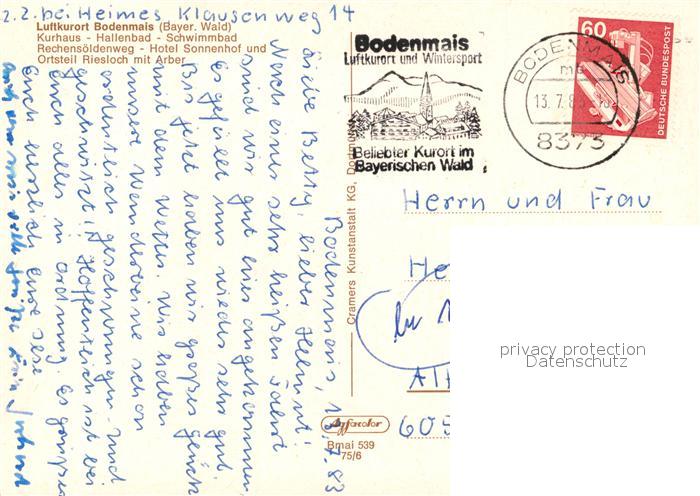 z.Z. bei Heimes, Klausenweg 14
Luftkurort Bodenmais (Bayer. Wald)
Kurhaus - Hallenbad - Schwimmbad
Rechensöldenweg - Hotel Sonnenhof und
Ortsteil Riesloch mit Arber
Bodenmais, 13.7.83
Liebe Betty, lieber Helmut!
Nach einer sehr heißen Fahrt
sind wir gut hier angekommen.
Es gefällt uns wieder sehr gut.
Bis jetzt haben wir großes Glück
mit dem Wetter. Wir haben
unsere Wanderbeine schon
ordentlich geschwungen und
geschwitzt! Hoffentlich ist bei
euch alles in Ordnung. Es grüßen
Euch herzlich eure
auch von mir
Cramers Kunstanstalt KG, Dortmund
Agfacolor
Bmai 539
75/6
Bodenmais
Luftkurort und Wintersport
Beliebter Kurort im
Bayerischen Wald
BODENMAIS
mc
13.7.83
8373
60
DEUTSCHE BUNDESPOST
Herrn und Frau
He
605
privacy protection
Datenschutz